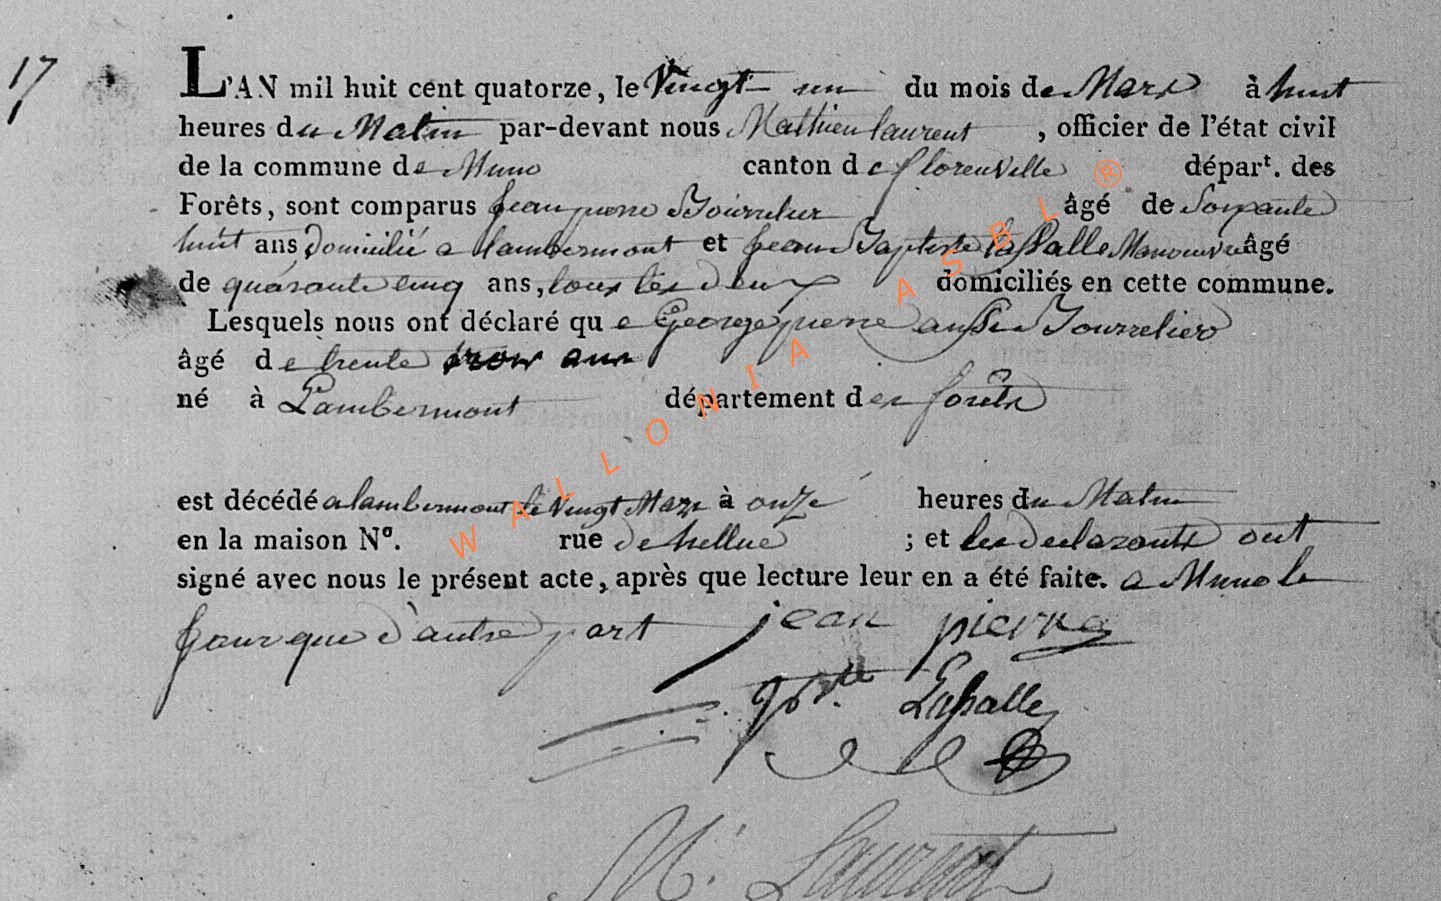 17
L'AN mil huit cent quatorze, le Vingt un du mois de Mars à huit
heures du Matin par-devant nous Mathieu laurent, officier de l'état civil
de la commune de Muno canton de florenville dépar<sup>t</sup>. des
Forêts, sont comparus jean pierre Bourrelier âgé de Soixante
huit ans, Domicilié a lambermont et jean Baptiste laSalle Manouvrier âgé
de quarante cinq ans, tous les deux domiciliés en cette commune.
Lesquels nous ont déclaré que George pierre aussi Bourrelier
âgé de trente trois ans
né à Lambermont département des forêts
est décédé a lambermont le Vingt Mars à onze heures du Matin
en la maison Nº. rue de ; et les declarants ont
signé avec nous le présent acte, après que lecture leur en a été faite. a Muno le
jour que d'autre part jean pierre
Lasalle
M. Laurent
WALLONIA ASBL ®